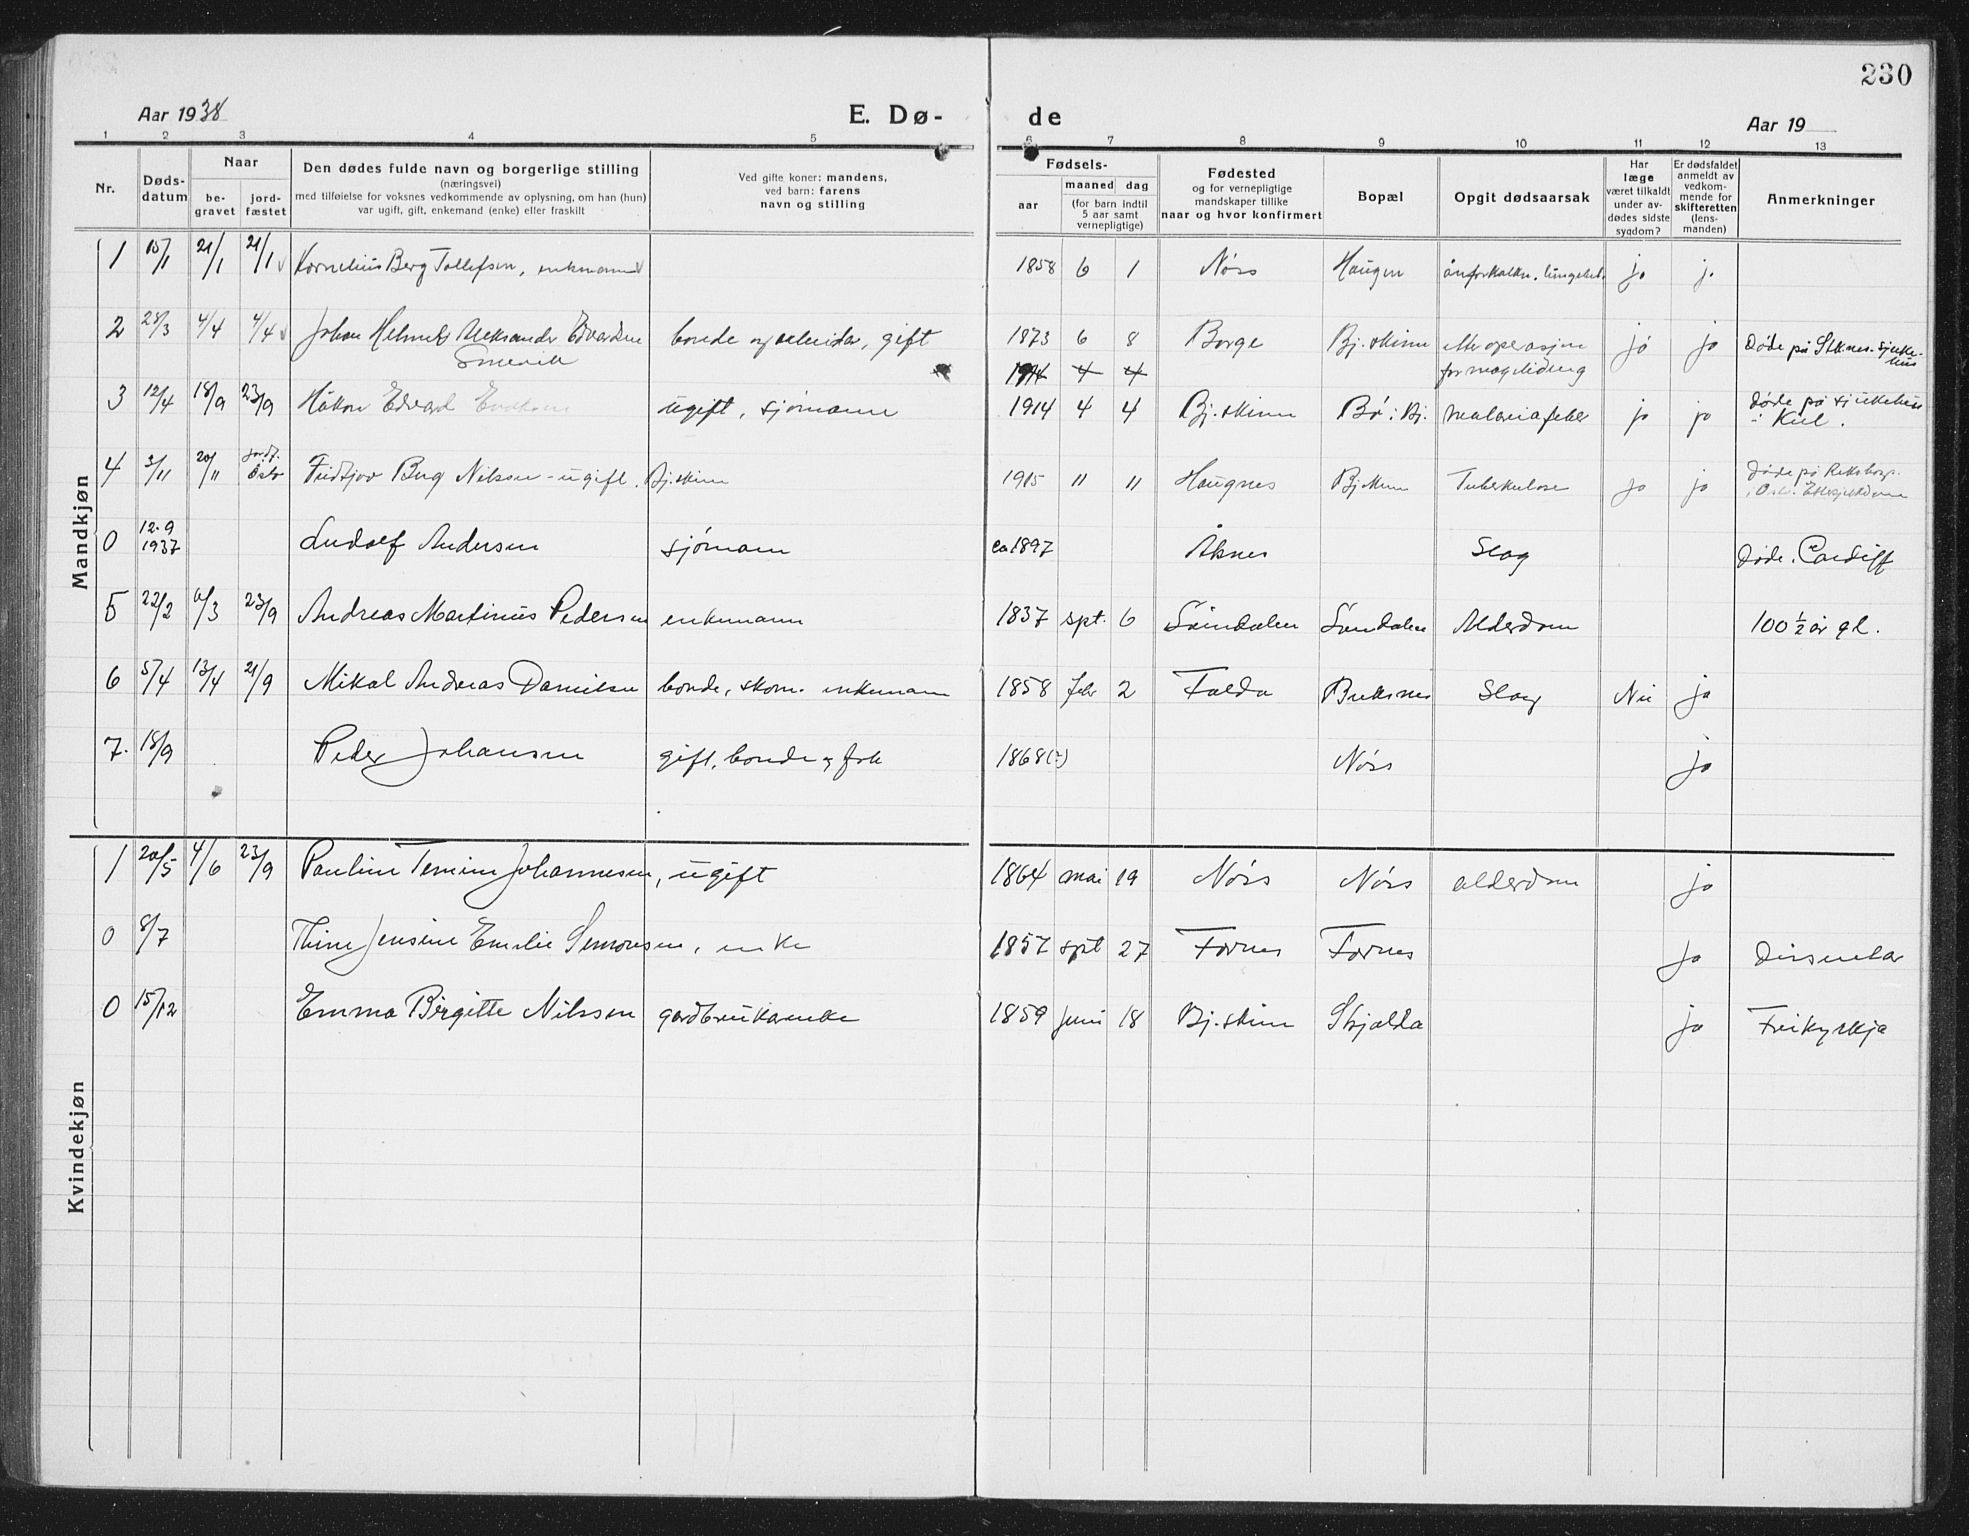 230
Aar 1938
E. Dø-
de
Aar 19
1 2 3 4 5 6 7 8 9 10 11 12 13
Nr.
Døds-
datum
Naar
be-
gravet
jord-
fæstet
Den dødes fulde navn og borgerlige stilling
(næringsvei)
med tilføielse for voksnes vedkommende av oplysning, om han (hun)
var ugift, gift, enkemand (enke) eller fraskilt
Ved gifte koner: mandens,
ved barn: farens
navn og stilling
Fødsels-
aar
maaned dag
(for barn indtil
5 aar samt
vernepligtige)
Fødested
og for vernepligtige
mandskaper tillike
naar og hvor konfirmert
Bopæl
Opgit dødsaarsak
Har
læge
været tilkaldt
under av-
dødes sidste
sygdom?
Er dødsfaldet
anmeldt av
vedkom-
mende for
skifteretten
(lens-
manden)
Anmerkninger
Mandkjøn
1 15/1 21/1 21/1 Kornelius Berg Tollefsen, enkemann 1858 6 1 Nöss Haugen jo jo
2 28/3 4/4 4/4 Johan Helmer Aleksander Edvardsen bonde og arbeider, gift 1873 6 8 Borge Bj.skinn etter operasjon jo jo Døde på Stknes. sjuke-
hus
1914 4 4 for magelidung
3 12/4 18/9 23/9 Håkon Edvard ugift, sjømann 1914 4 4 Bj.skinn Bø i Bj. malariafeber jo jo Døde på sjukehus
i Kiel.
4 3/11 20/11 jordf.
Oslo Fridtjov Berg Nilssen - ugift. Bj.skinn 1915 11 11 Haugnes Bj.skinn Tuberkulose jo jo Døde på Rikshosp.
0 12.9
1937 Ludolf Andersen sjömann ca 1897 Åknes Slag Døde i Cardiff
5 22/2 6/3 23/9 Andreas Martinus Pedersen enkemann 1837 spt. 6 Sörndalen Sördalen Alderdom 100 ½ år gl.
6 5/4 13/4 21/9 Mikal Andreas Danielsen bonde, skom. enkemann 1858 febr 2 Folda Buksnes Slag Nei ja
7. 18/9 Peder Johansen gift, bonde og fisk 1868(?) Nöss jo
Kvindekjøn
1 20/5 4/6 23/9 Pauline Temine Johannesen, ugift 1864 mai 19 Nöss Nöss alderdom jo
0 8/7 Thine Jensine Emelie Simonsen, enke 1857 spt 27 Fornes Fornes Jo Dissenter
0 15/12 Emma Birgitte Nilssen gardbrukarenke 1859 juni 18 Bj.skinn Skjolda jo Frikyrkja